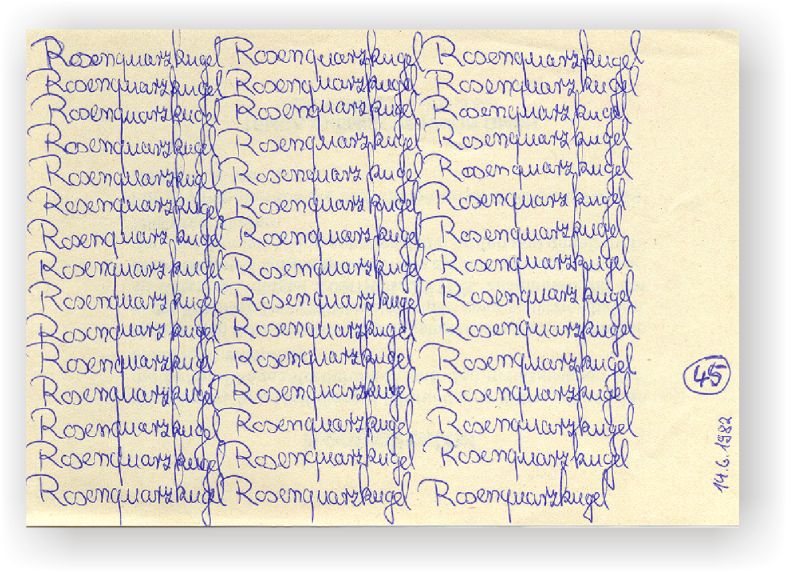 Rosenquarzkugel Rosenquarzkugel Rosenquarzkugel
Rosenquarzkugel Rosenquarzkugel Rosenquarzkugel
Rosenquarzkugel Rosenquarzkugel Rosenquarzkugel
Rosenquarzkugel Rosenquarzkugel Rosenquarzkugel
Rosenquarzkugel Rosenquarzkugel Rosenquarzkugel
Rosenquarzkugel Rosenquarzkugel Rosenquarzkugel
Rosenquarzkugel Rosenquarzkugel Rosenquarzkugel
Rosenquarzkugel Rosenquarzkugel Rosenquarzkugel
Rosenquarzkugel Rosenquarzkugel Rosenquarzkugel
Rosenquarzkugel Rosenquarzkugel Rosenquarzkugel
Rosenquarzkugel Rosenquarzkugel Rosenquarzkugel
Rosenquarzkugel Rosenquarzkugel Rosenquarzkugel
Rosenquarzkugel Rosenquarzkugel Rosenquarzkugel
Rosenquarzkugel Rosenquarzkugel Rosenquarzkugel
Rosenquarzkugel Rosenquarzkugel Rosenquarzkugel
45
14.6.1982